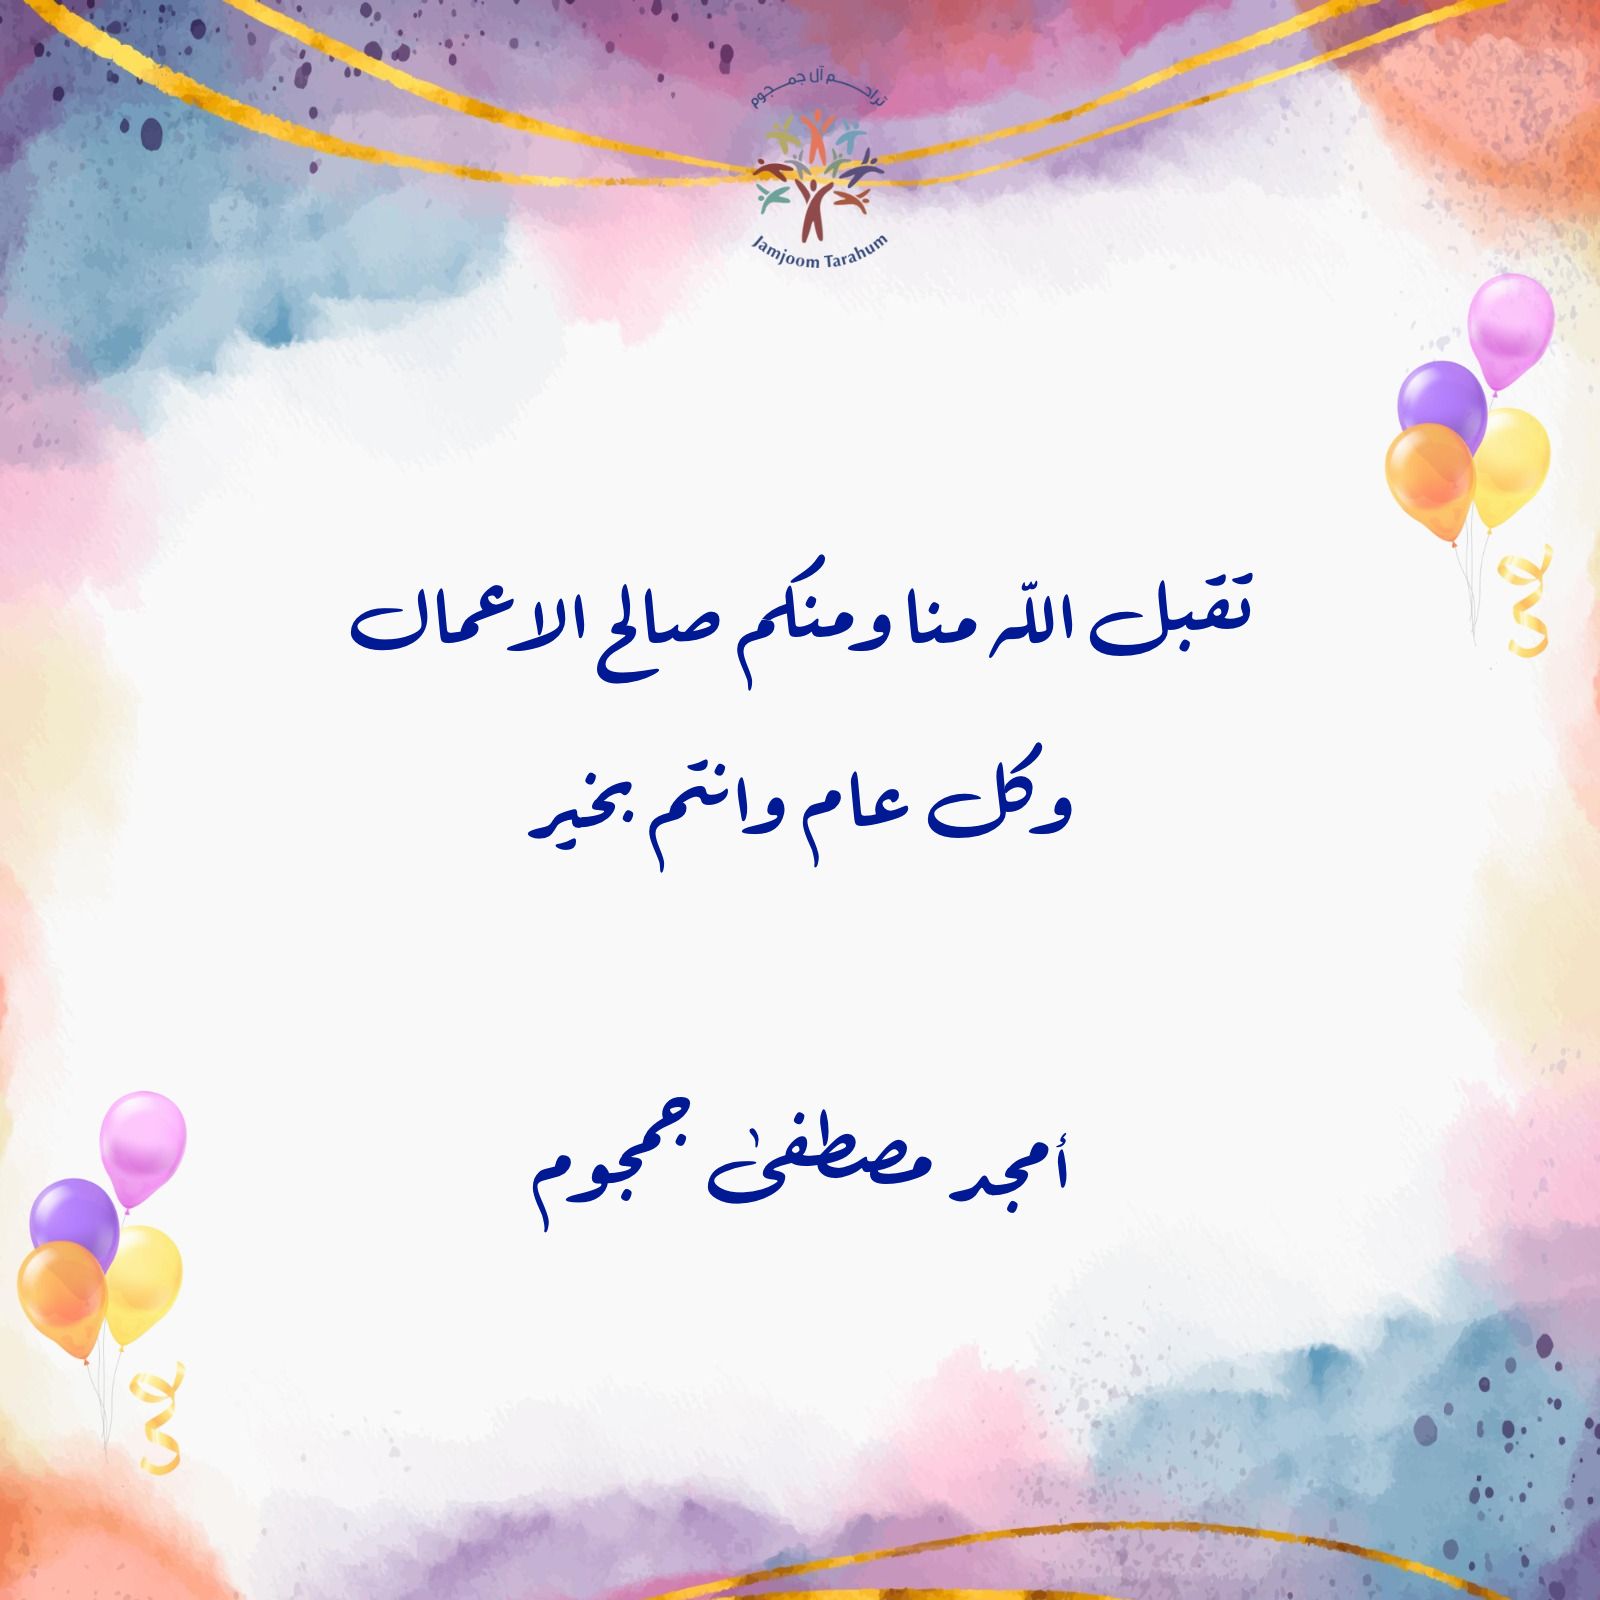 تراحم آل جمجوم
Jamjoom Tarahum
تقبل اللّه منا ومنكم صالح الاعمال
وكل عام وانتم بخير
أمجد مصطفىٰ جمجوم